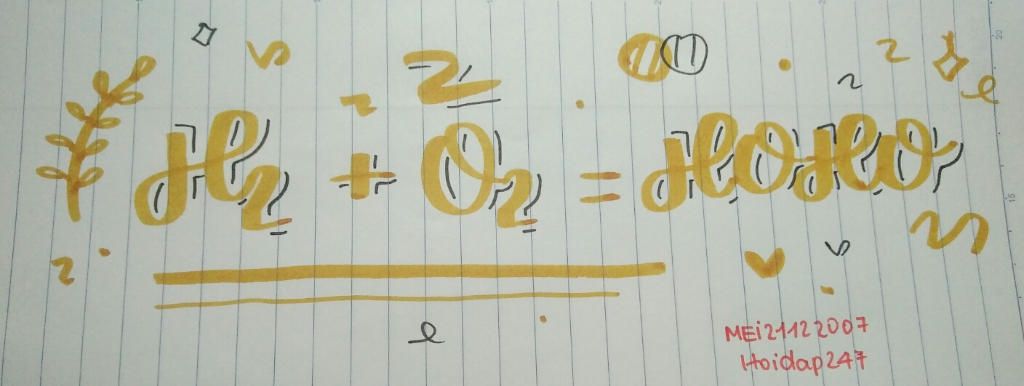 H2 + O2 = HOHO
MEi21122007
Hoidap247